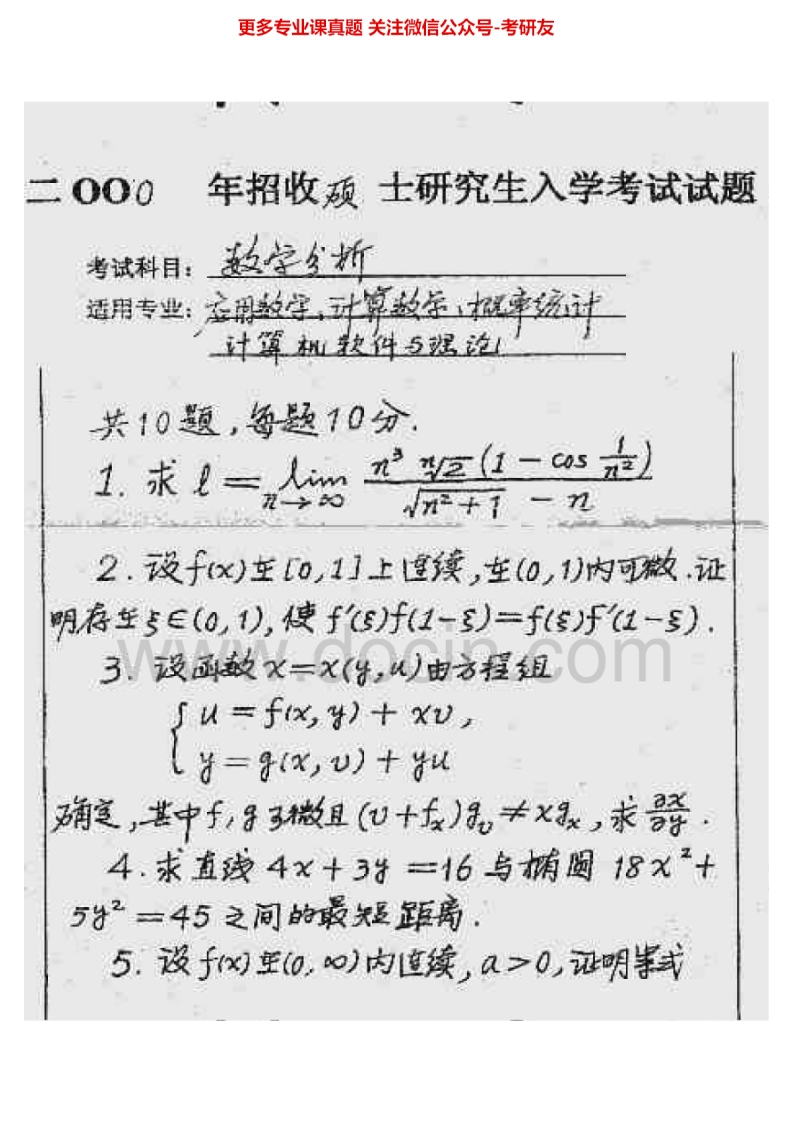 更多专业课真题 关注微信公众号-考研友
二000 年招收硕士研究生入学考试试题
考试科目: 数学分析
适用专业: 应用数学、计算数学、概率统计
计算机软件与理论
共10题,每题10分.
1. 求 l = lim_{n→∞} \frac{n^3 \sqrt[n]{2} (1 - cos \frac{1}{n^2})}{\sqrt{n^2+1} - n}
2. 设f(x)在[0,1]上连续,在(0,1)内可微.证
明存在ξ∈(0,1),使f′(ξ)f(1-ξ)=f(ξ)f′(1-ξ).
www.docin.com
3. 设函数x=x(y,u)由方程组
u = f(x,y) + xv,
y = g(x,v) + yu
确定,其中f,g可微且(v+f_x)g_v≠xg_x,求∂x/∂y.
4. 求直线 4x+3y=16 与椭圆 18x²+
5y²=45之间的最短距离.
5. 设f(x)在(0,∞)内连续,a>0,证明等式